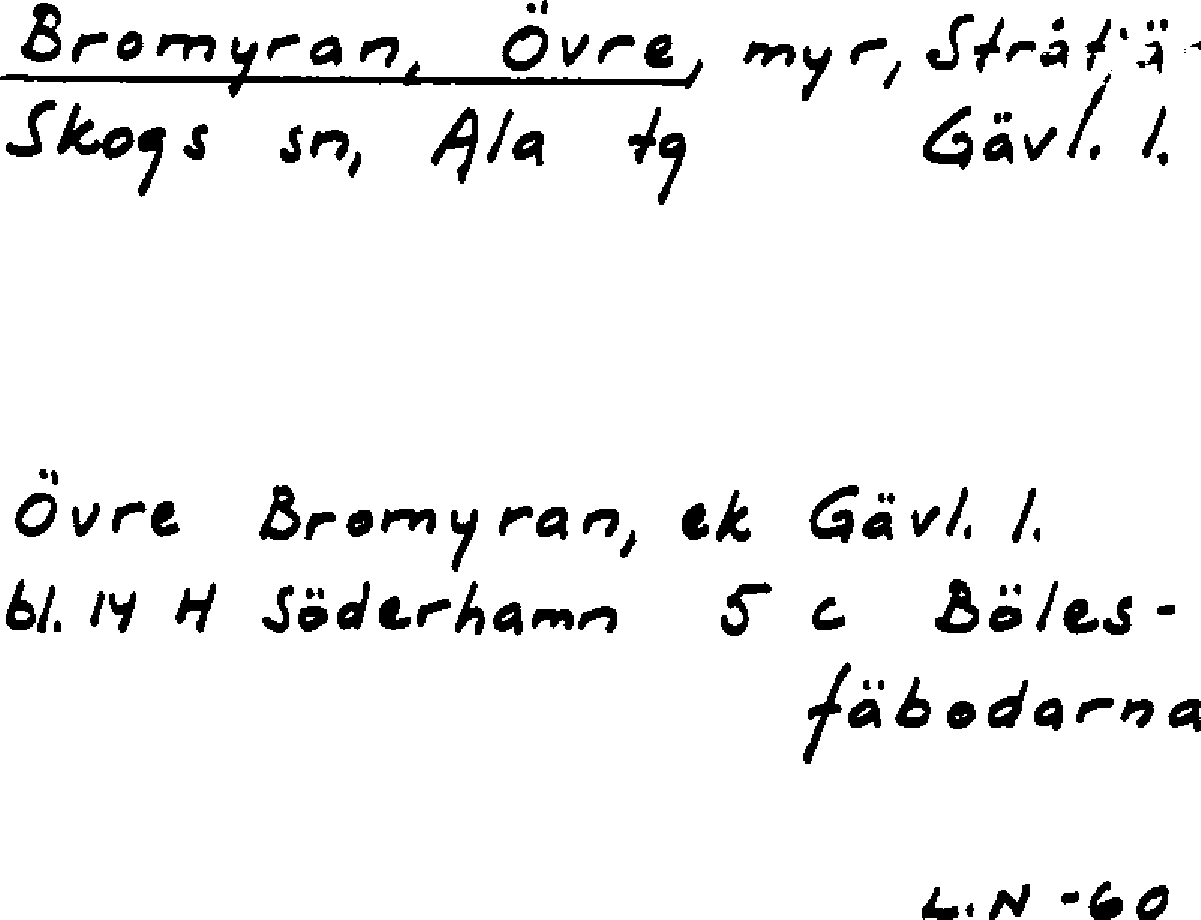 Bromyran, Övre, myr, Stråtjä-
Skogs sn, Ala tg Gävl. l.
Övre Bromyran, ek Gävl. l.
bl. 14 H Söderhamn 5 c Böles-
fäbodarna
L.N -60